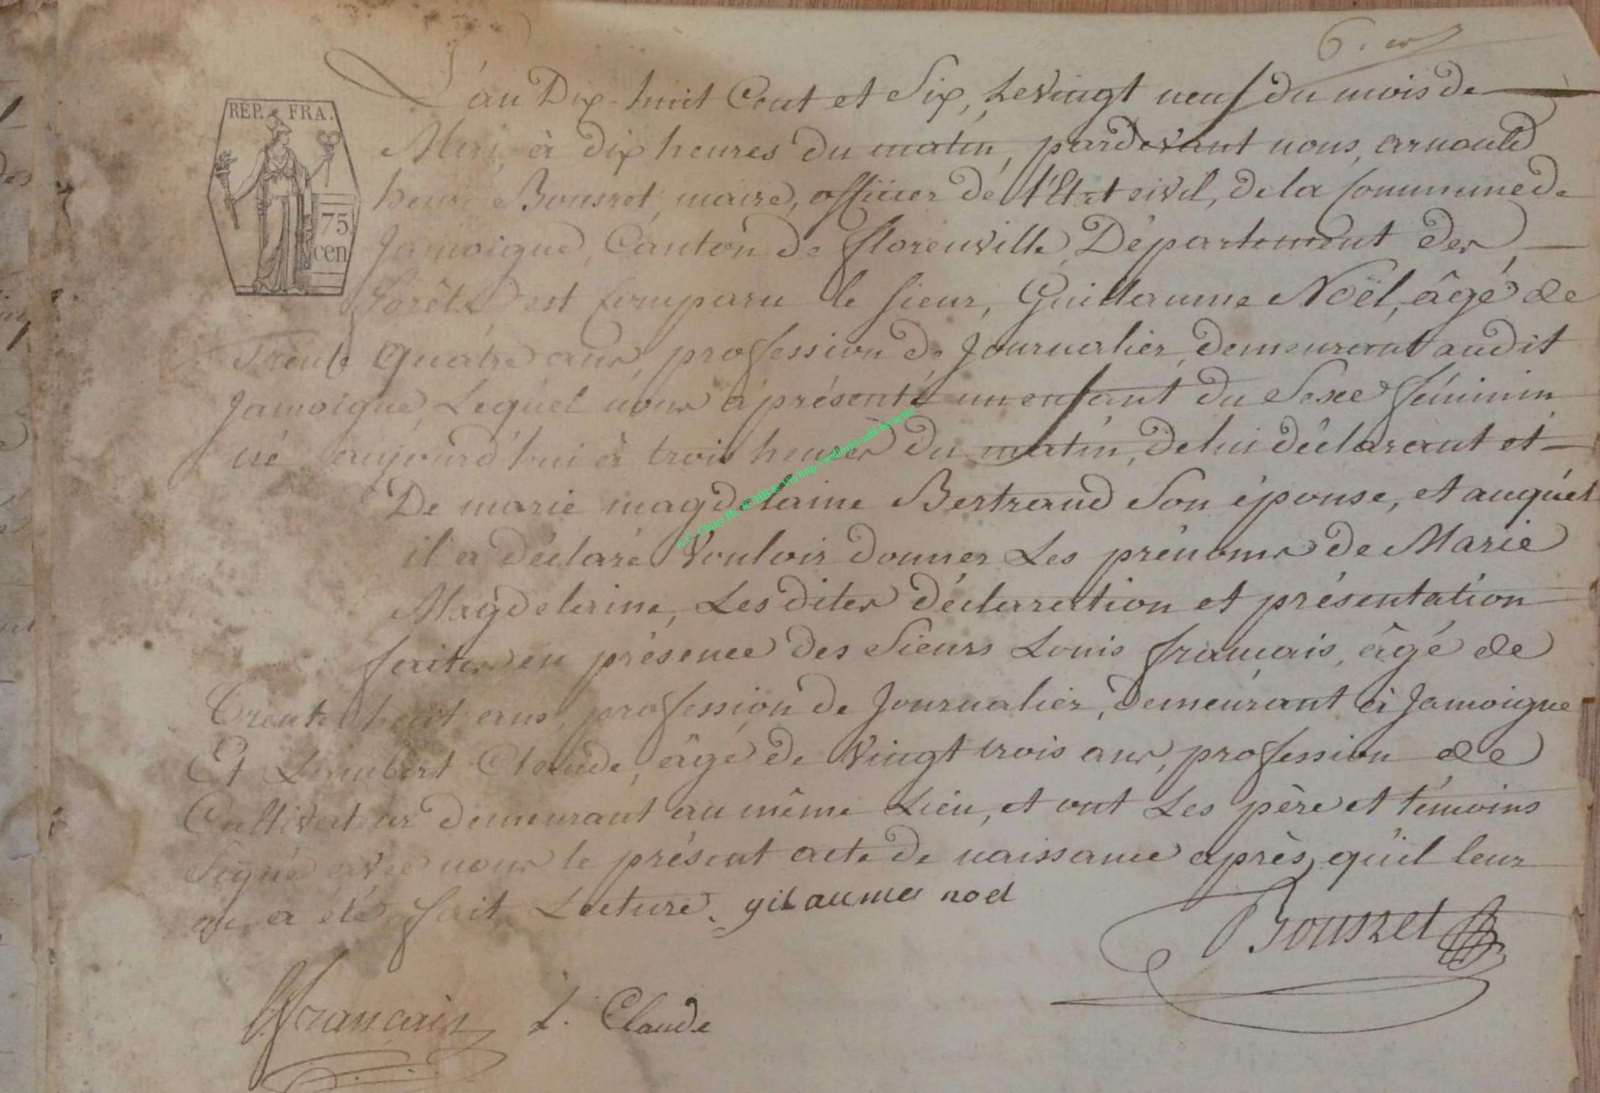 REP. FRA.
75
cen
L'an Dix-huit Cent et Six, Le Vingt neuf du mois de
Mai, à dix heures du matin, pardevant nous, arnould
henri Bousret, maire, officier de l'Etat civil, de la Commune de
Jamoigne, Canton de florenville, Département des
Forêts est Comparu le sieur, Guillaume Noël, âgé de
Trente quatre ans, profession de Journalier, demeurant audit
Jamoigne Lequel nous à présenté un enfant du Sexe féminin
né aujourd'hui à trois heures du matin, de lui déclarant et
De marie magdelaine Bertrand Son épouse, et auquel
il a déclaré Vouloir donner Les prénoms de Marie
Magdelaine, Les dites déclaration et présentation
faites en présence des Sieurs Louis français, âgé de
Trente huit ans, profession de Journalier, demeurant à Jamoigne
Et Lambert Claude, âgé de Vingt trois ans, profession de
Cultivateur demeurant au même Lieu, et ont Les père et témoins
Signé avec nous le présent acte de naissance après, qu'il leur
en a été fait Lecture. gilaumes noel
Bousret
français L. Claude